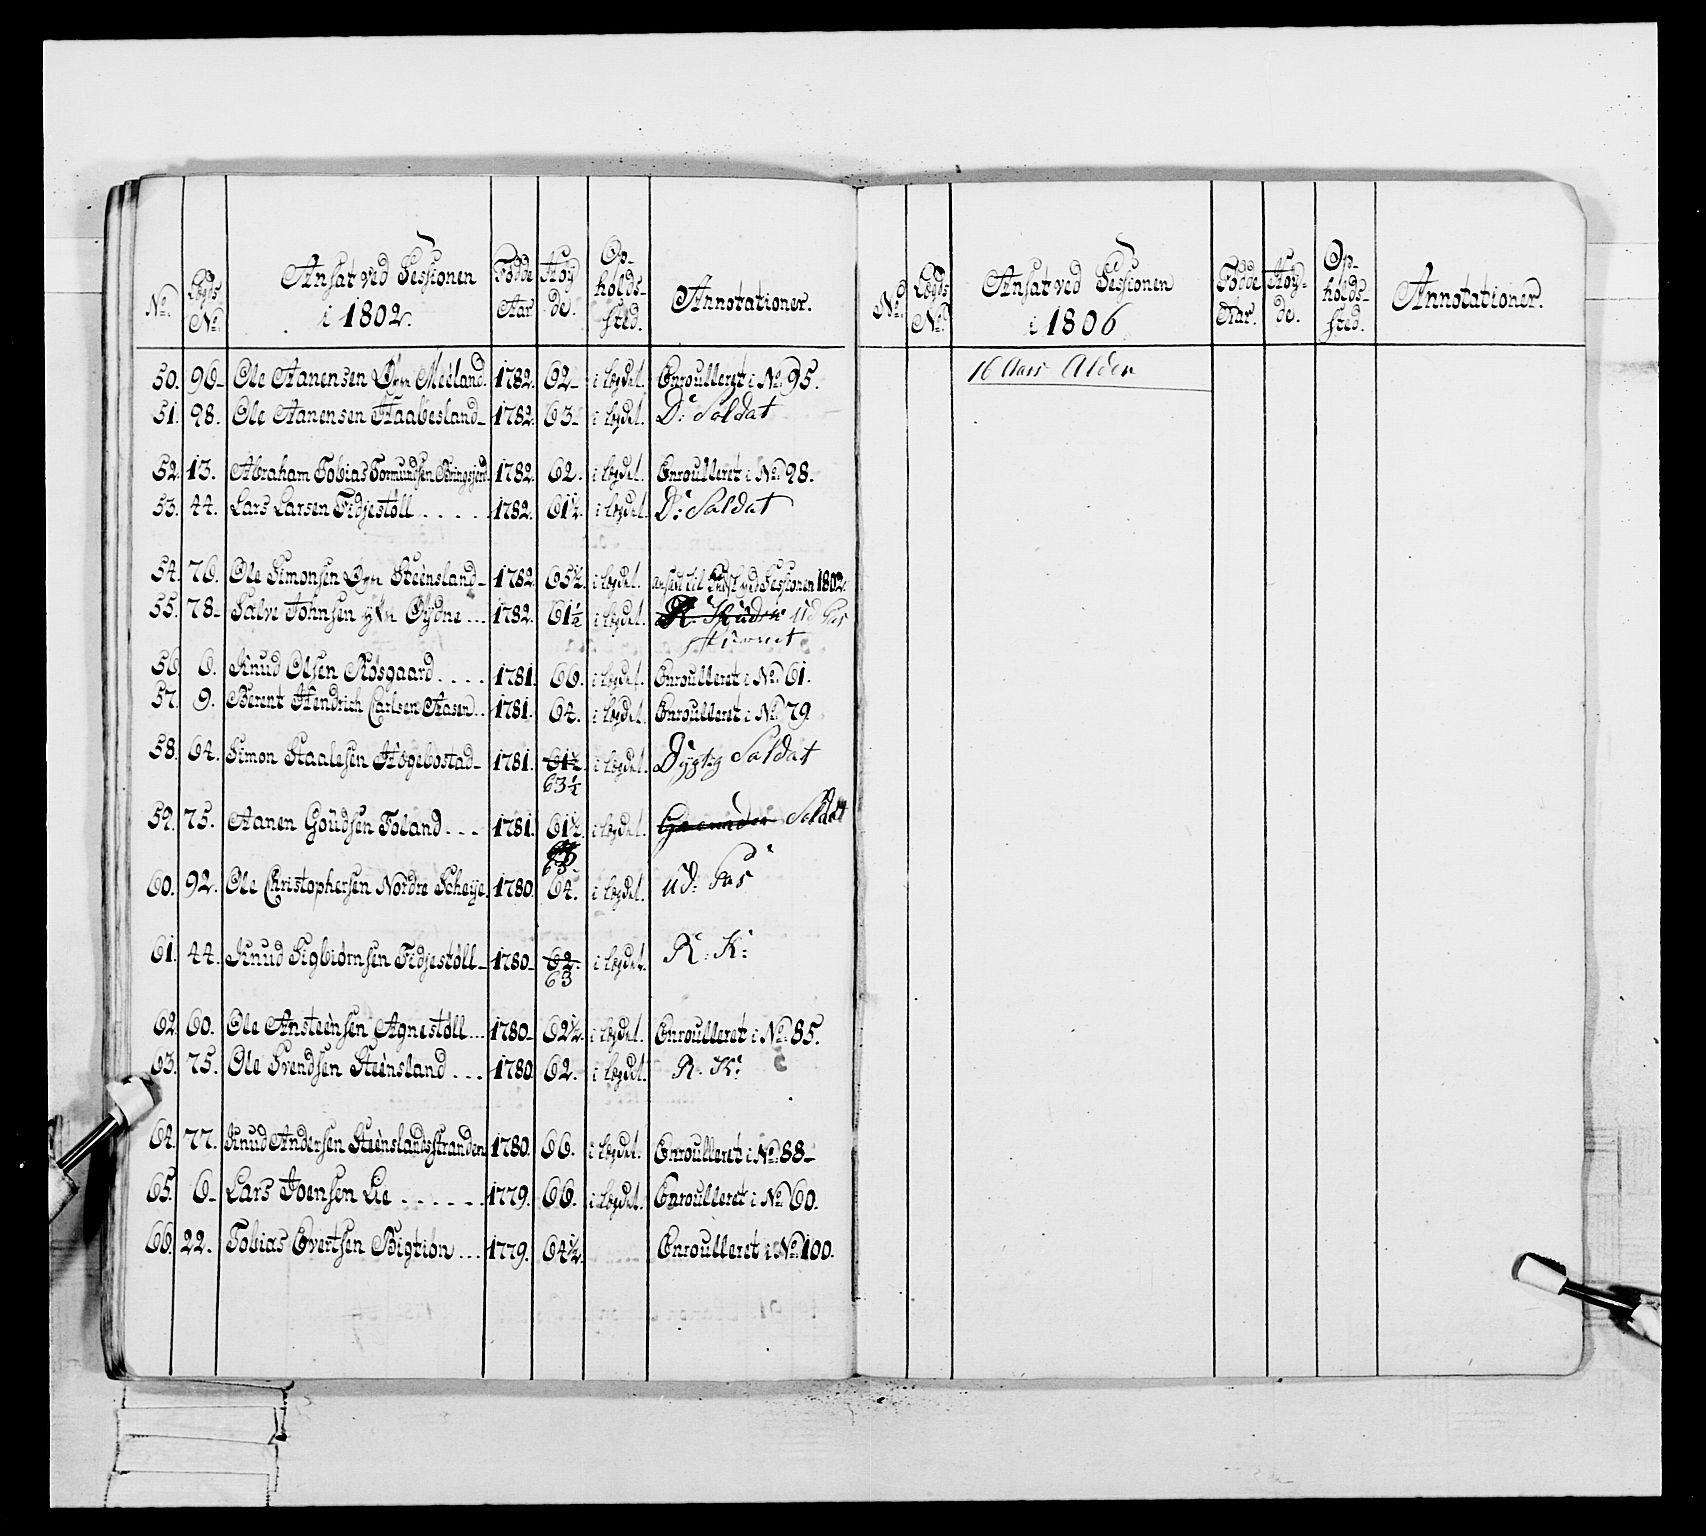 No. Lægds No. Ansat ved Sessionen i 1802. Fødde Aar Høyde. Opholdssted. Annotationer.
50. 96 Ole Aanensen Meeland. 1782. 62 i lægdet. Enroulleret i No. 95.
51. 98. Ole Aanensen Haabesland 1782. 63 i lægdet. D: Soldat
52. 13. Abraham Tobias Tormundsen 1782. 62. i lægdet. Enroulleret i No. 98.
53. 44. Lars Larsen Fidjestøll 1782. 61½. i lægdet. D: Soldat
54. 76. Ole Simonsen Steensland 1782. 65½. i lægdet. ansat til ved Sessionen 1802.
55. 78 Salve Johnsen Øydne 1782. 61½ i lægdet. Ud Pas
56. 6. Knud Olsen Røsgaard 1781. 66. i lægdet. Enroulleret i No. 61.
57. 9. Berent Hendrich Carlsen Aasen 1781. 64. i lægdet. Enroulleret i No. 79
58. 64. Simon Staalesen Høgebostad 1781. 61½. i lægdet. Dygtig Soldat
63½
59. 75. Aanen Goudsen Foland 1781. 61½. i lægdet. Soldat
63.
60. 92. Ole Christophersen Nordre Scheije. 1780. 64. i lægdet. ud: Pas
61. 44. Knud Sigbiørnsen Fidjestøll 1780 62. i lægdet. R: K:
63
62. 60. Ole Ansteensen Agnestøll 1780 62½. i lægdet. Enroulleret i No. 85.
63. 75. Ole Svendsen Steensland 1780 62. i lægdet. R. K:
64. 77. Knud Andersen Steenslandsstranden 1780. 66. i lægdet. Enroulleret i No. 88
65. 6 Lars Joensen Lie 1779. 66. i lægdet. Enroulleret i No. 60.
66. 22. Tobias Evertsen Bigtion 1779. 64½. Enroulleret i No. 100.
No. Lægds No. Ansat ved Sessionen i 1806 Fødde Aar. Høyde. Opholdssted. Annotationer.
16 Aars Alder